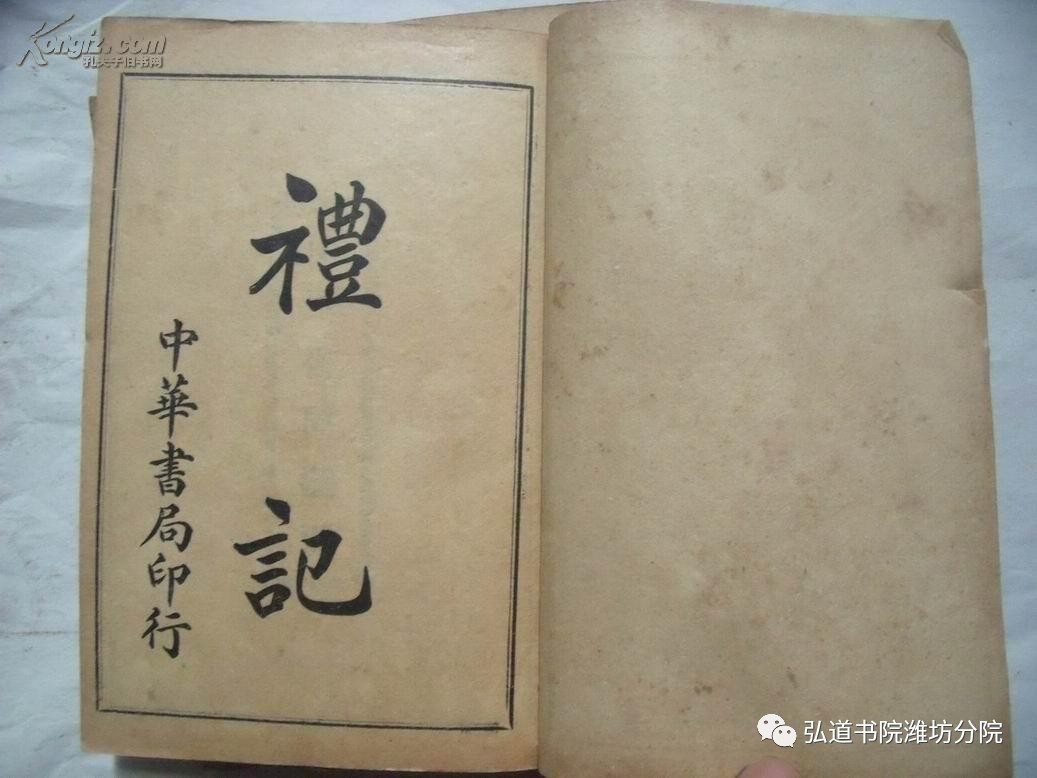 Kongfz.com
孔夫子旧书网
禮記
中華書局印行
弘道书院潍坊分院